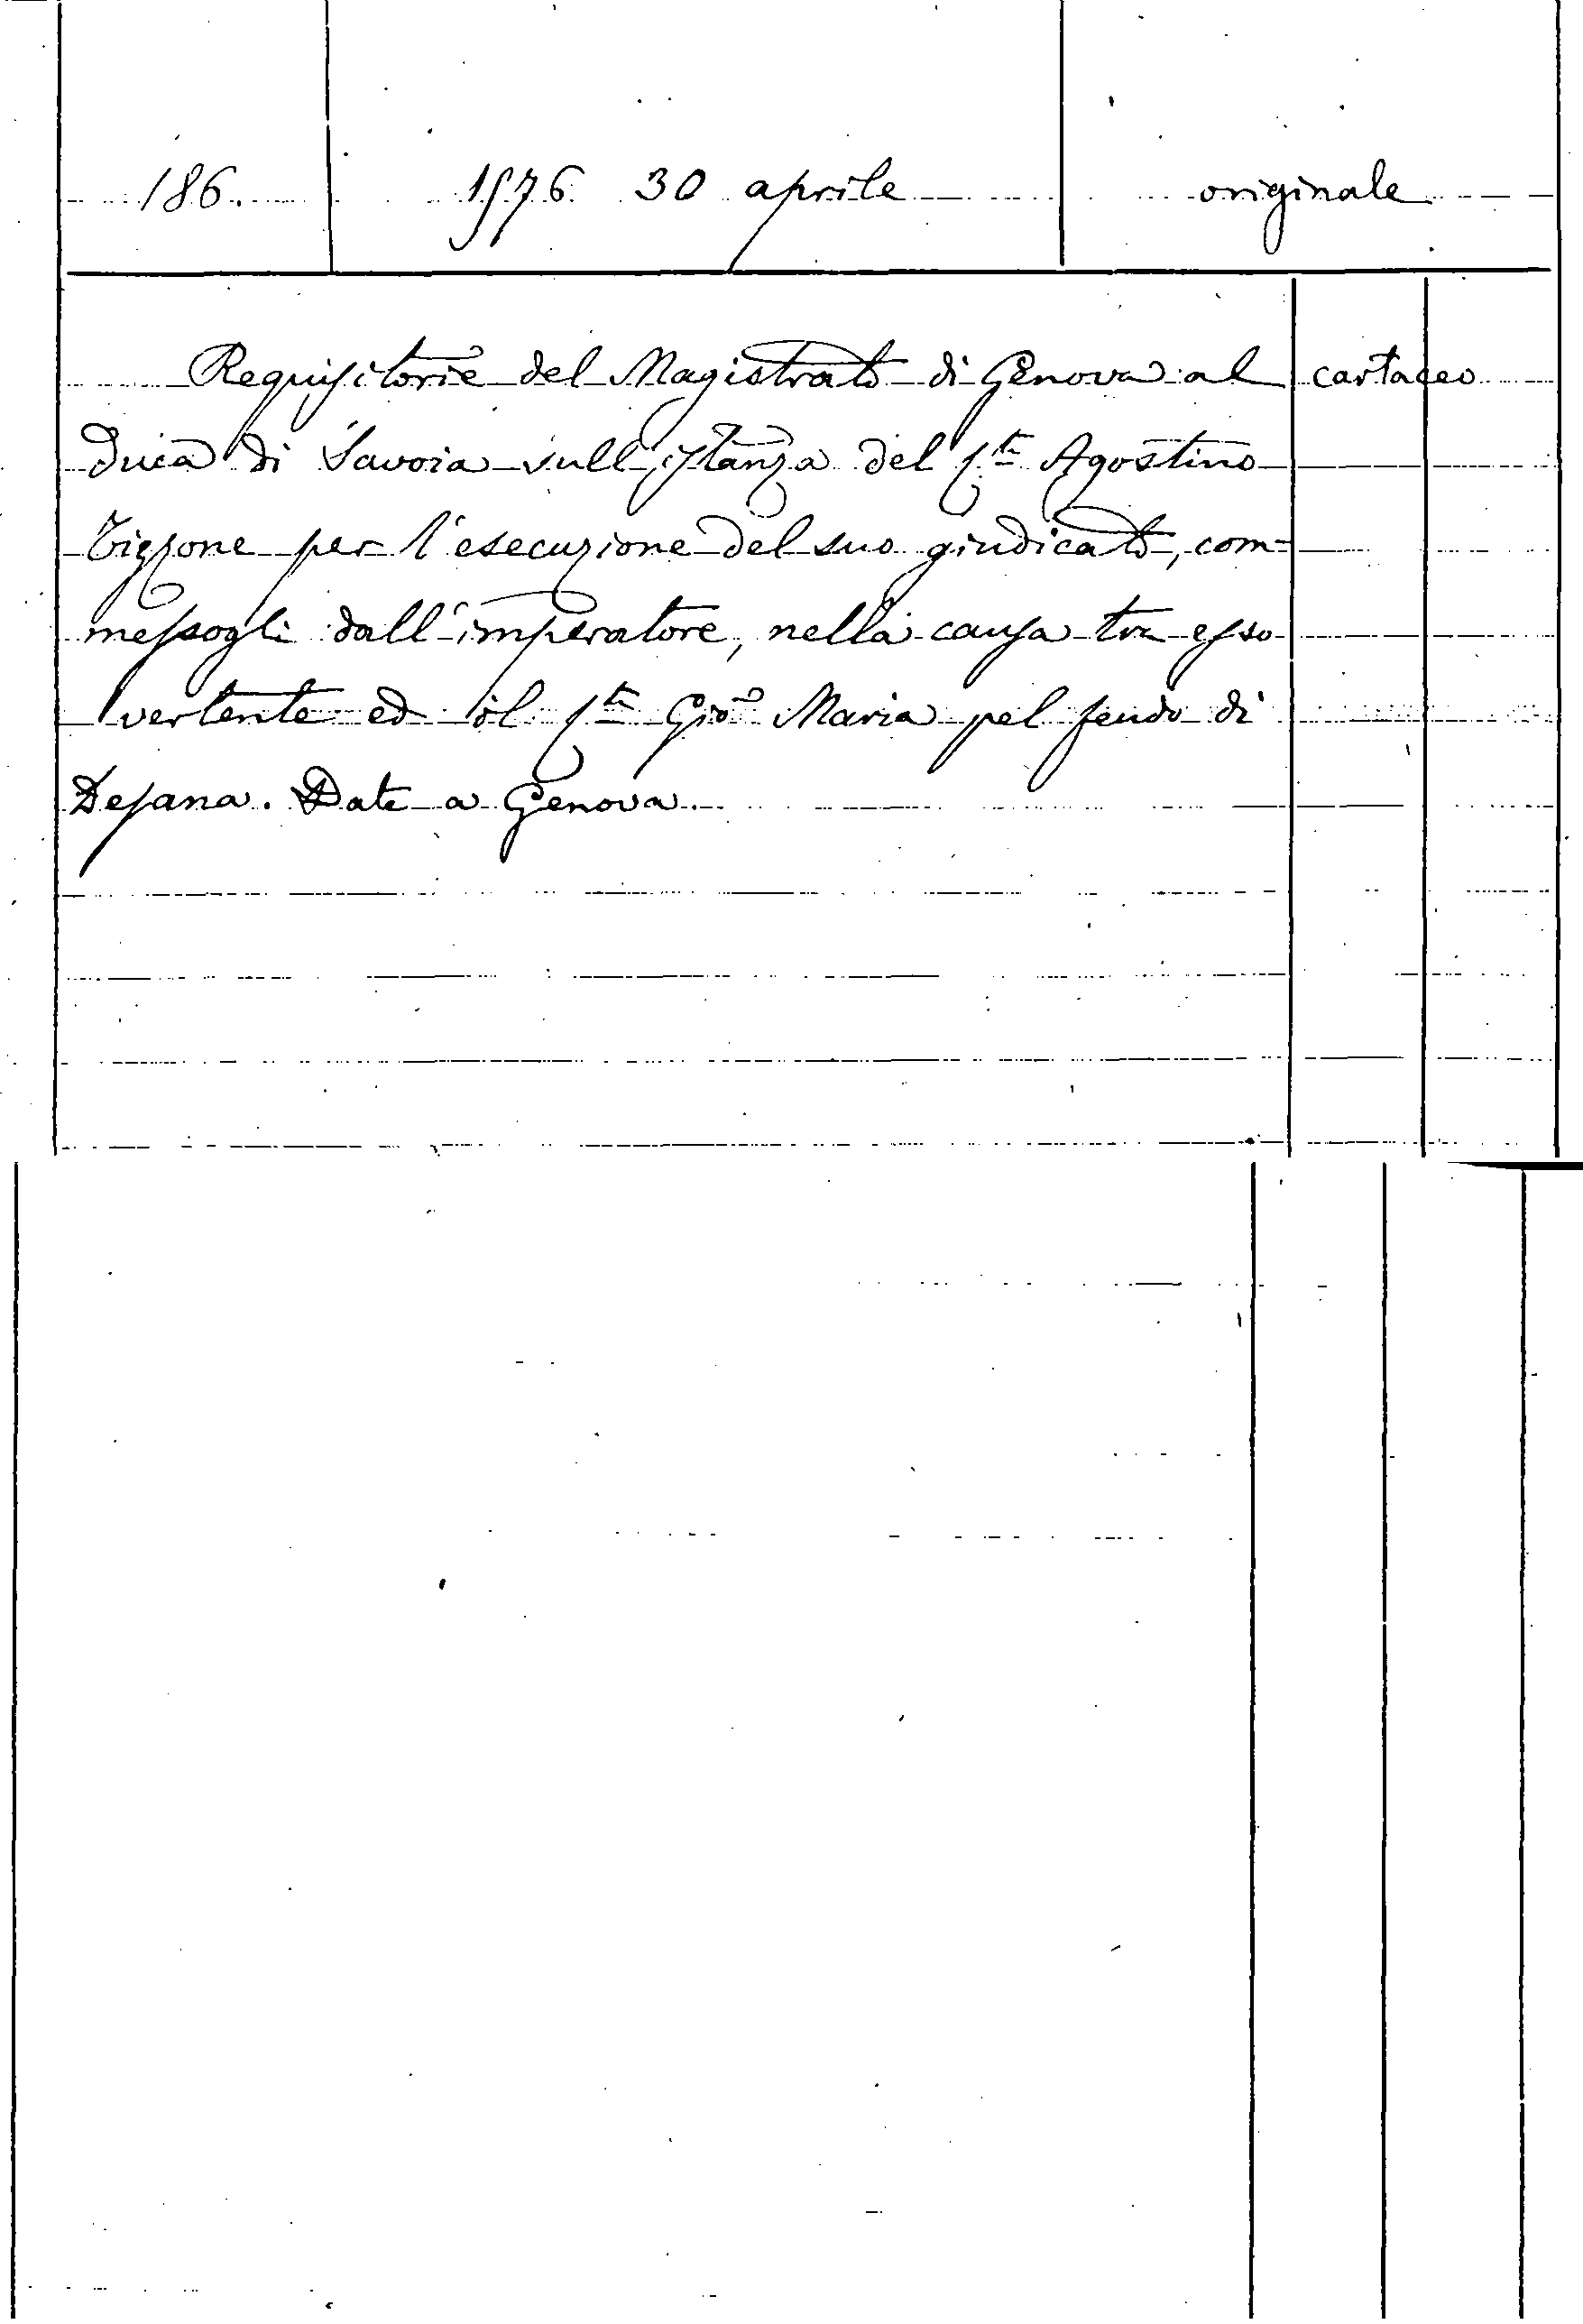 186. 1576 30 aprile originale
Requisitorie del Magistrato di Genova al cartaceo
Duca di Savoia sull'istanza del c.te Agostino
Tizzone per l'esecuzione del suo giudicato, com=
messogli dall'imperatore, nella causa tra esso
vertente ed il c.te Gio. Maria pel feudo di
Desana. Date a Genova.